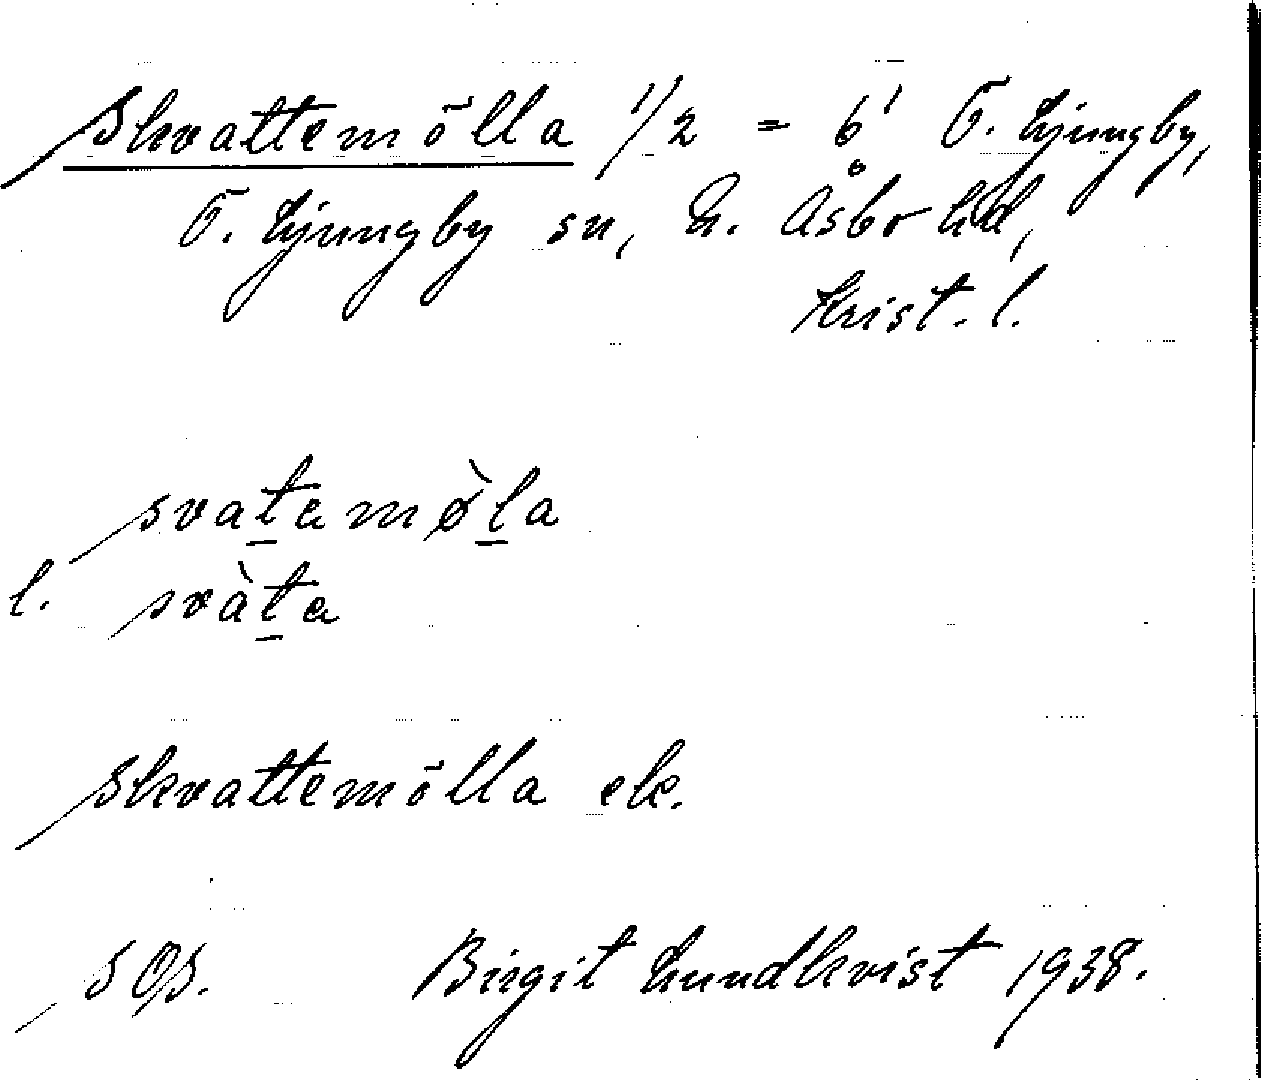 Skvattemölla 1/2 = 6¹ Ö. Ljungby,
Ö. Ljungby sn, N. Åsbo hd,
Krist. l.
svatamø̀la
l. svàta
Skvattemölla ek.
SOS. Birgit Lundkvist 1938.